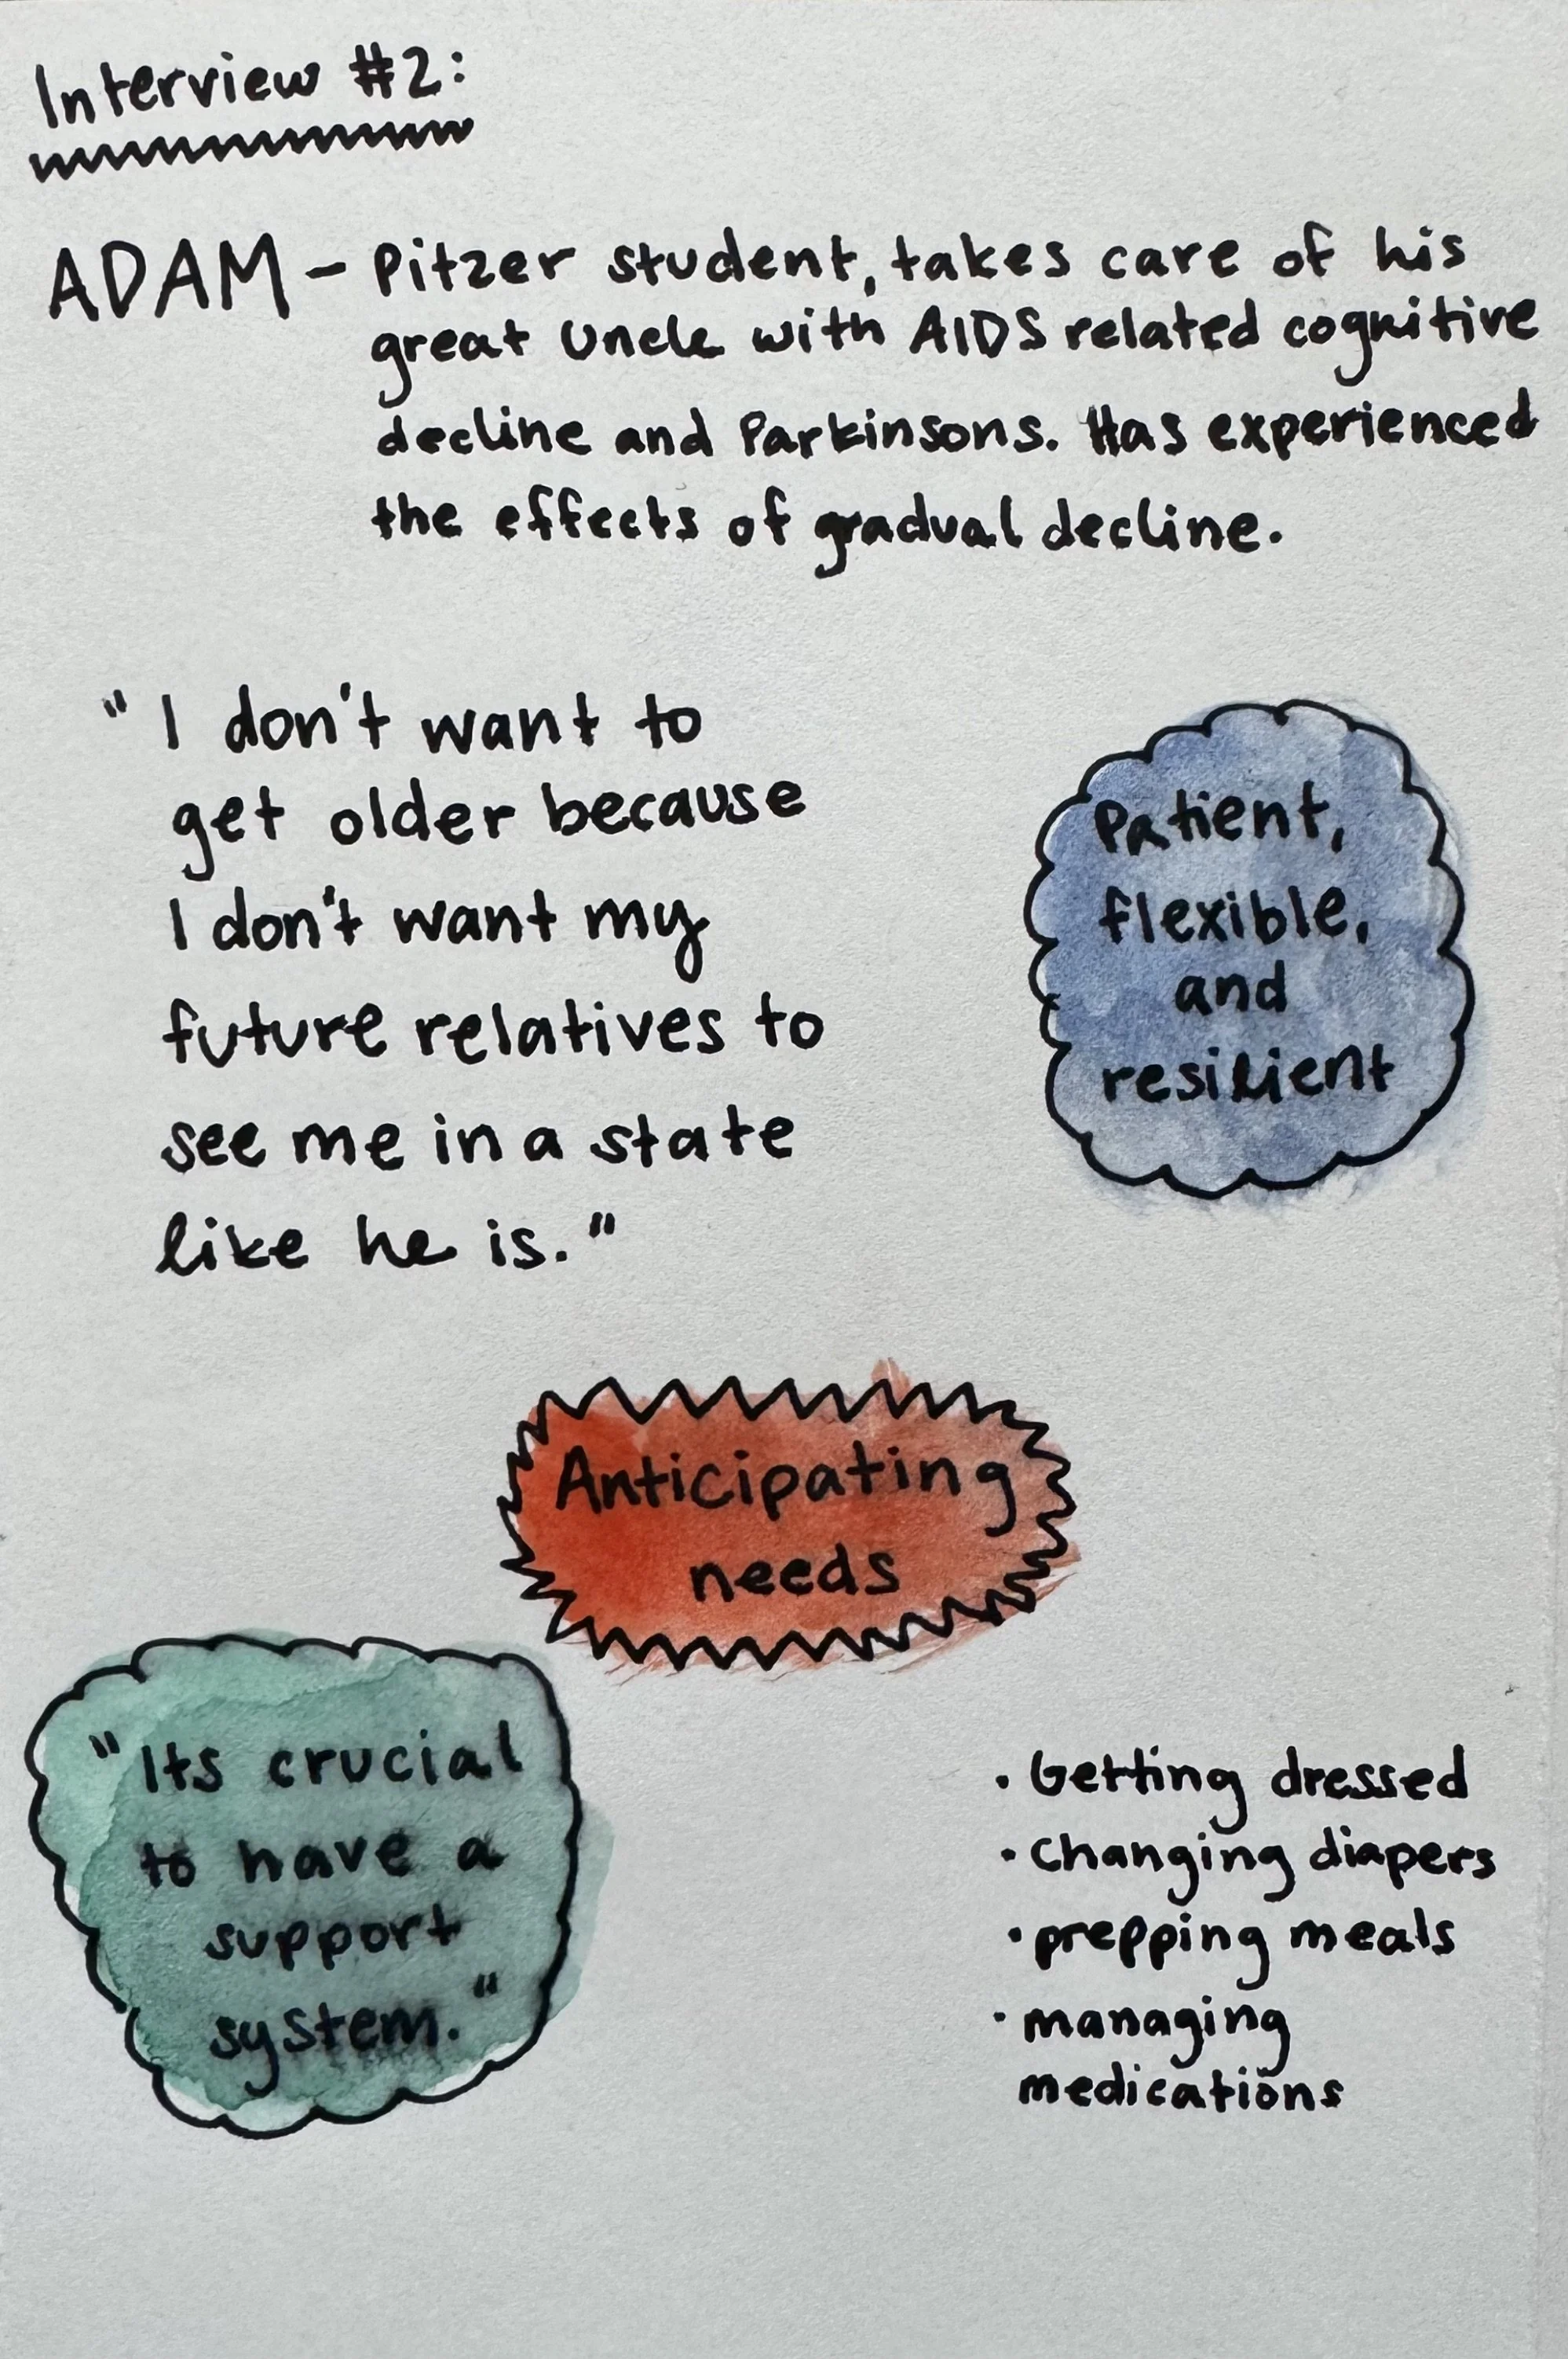 Interview #2:
ADAM - Pitzer student, takes care of his
great Uncle with AIDS related cognitive
decline and Parkinsons. Has experienced
the effects of gradual decline.
" I don't want to
get older because
I don't want my
future relatives to
see me in a state
like he is."
Patient,
flexible,
and
resilient
Anticipating
needs
"Its crucial
to have a
support
system."
· Getting dressed
· Changing diapers
· prepping meals
· managing
medications